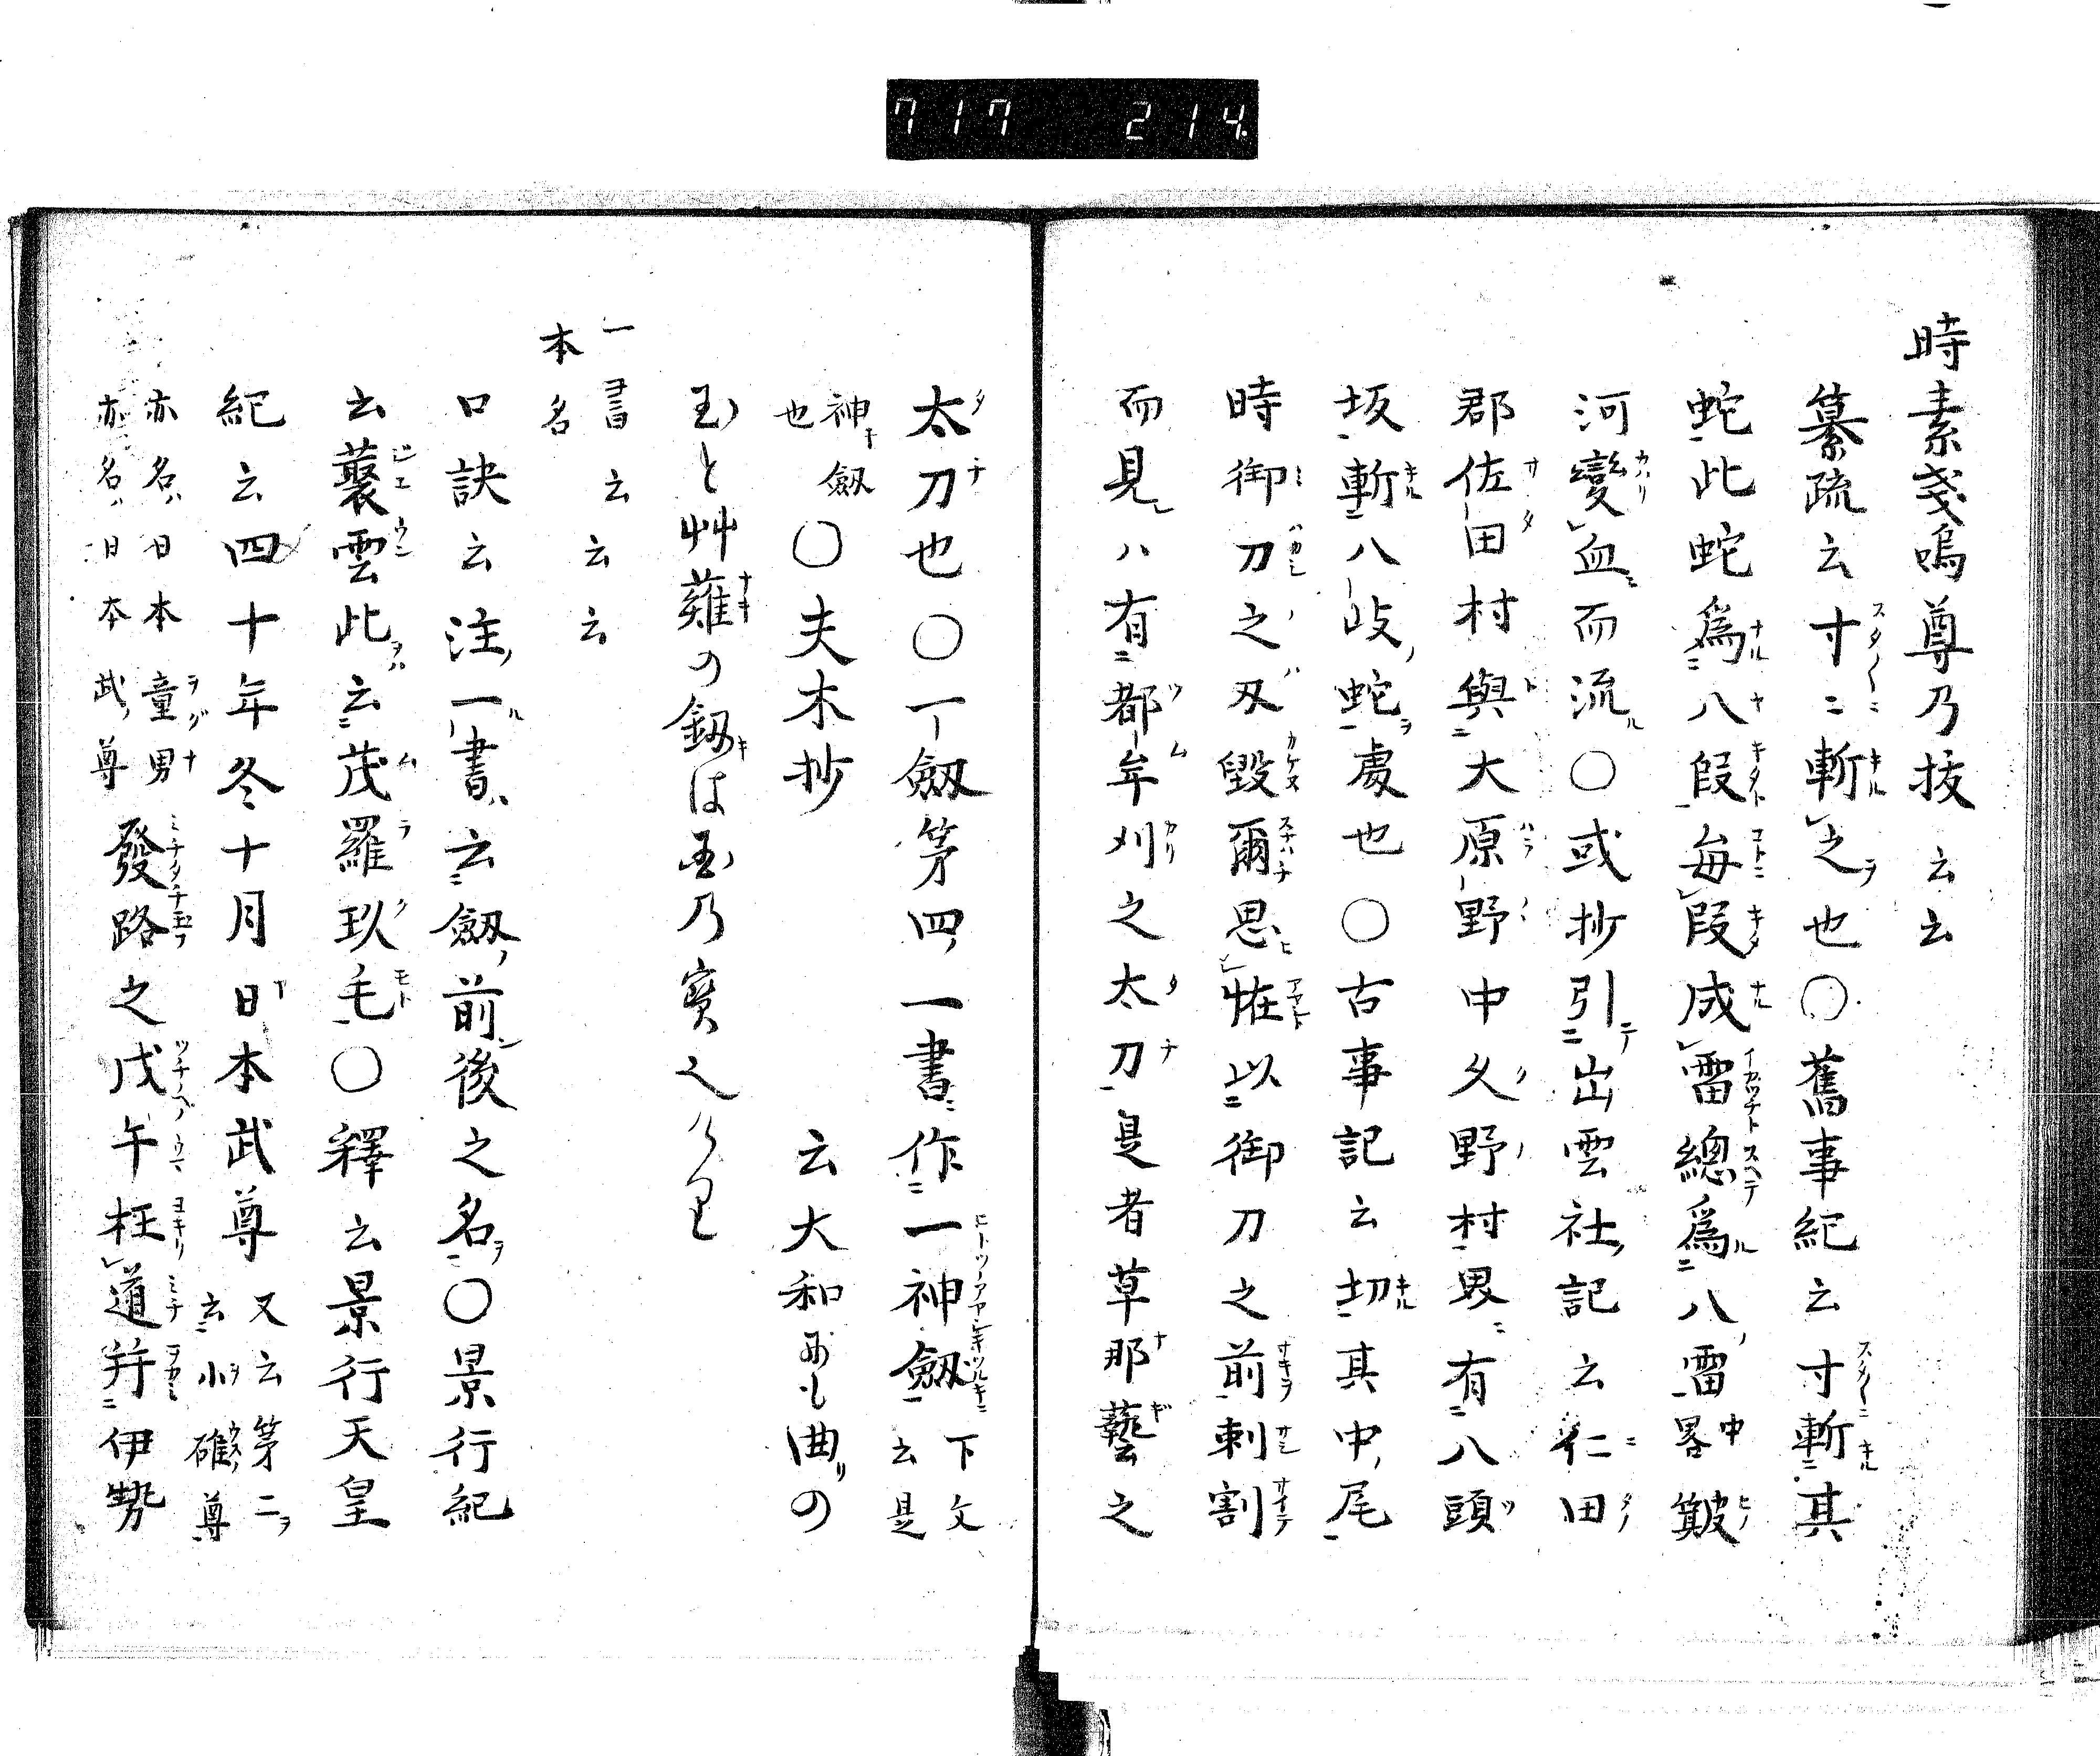 717 214
時素戔嗚尊乃拔云云
纂疏云寸〻斬之也〇舊事紀云寸斬其
蛇此蛇爲八段毎段成雷總爲八雷中畧簸
河變血而流〇或抄引出雲社記云仁田
郡佐田村與大原野中久野村界有八頭
坂斬八岐蛇處也〇古事記云切其中尾
時御刀之刄毀爾思恠以御刀之前刺割
而見ハ有都牟刈之太刀是者草那藝之
太刀也〇一劔第四一書作一神劔下文云是
神劔也〇夫木抄 云大和
と艸薙の釼は 乃寳
一書云云
本名云
口訣云注一書云劔前後之名〇景行紀
云藂雲此云茂羅玖毛〇釋云景行天皇
紀云四十年冬十月日本武尊又云第二云小碓尊
亦名日本童男亦名日本武尊發路之戊午枉道幷伊勢